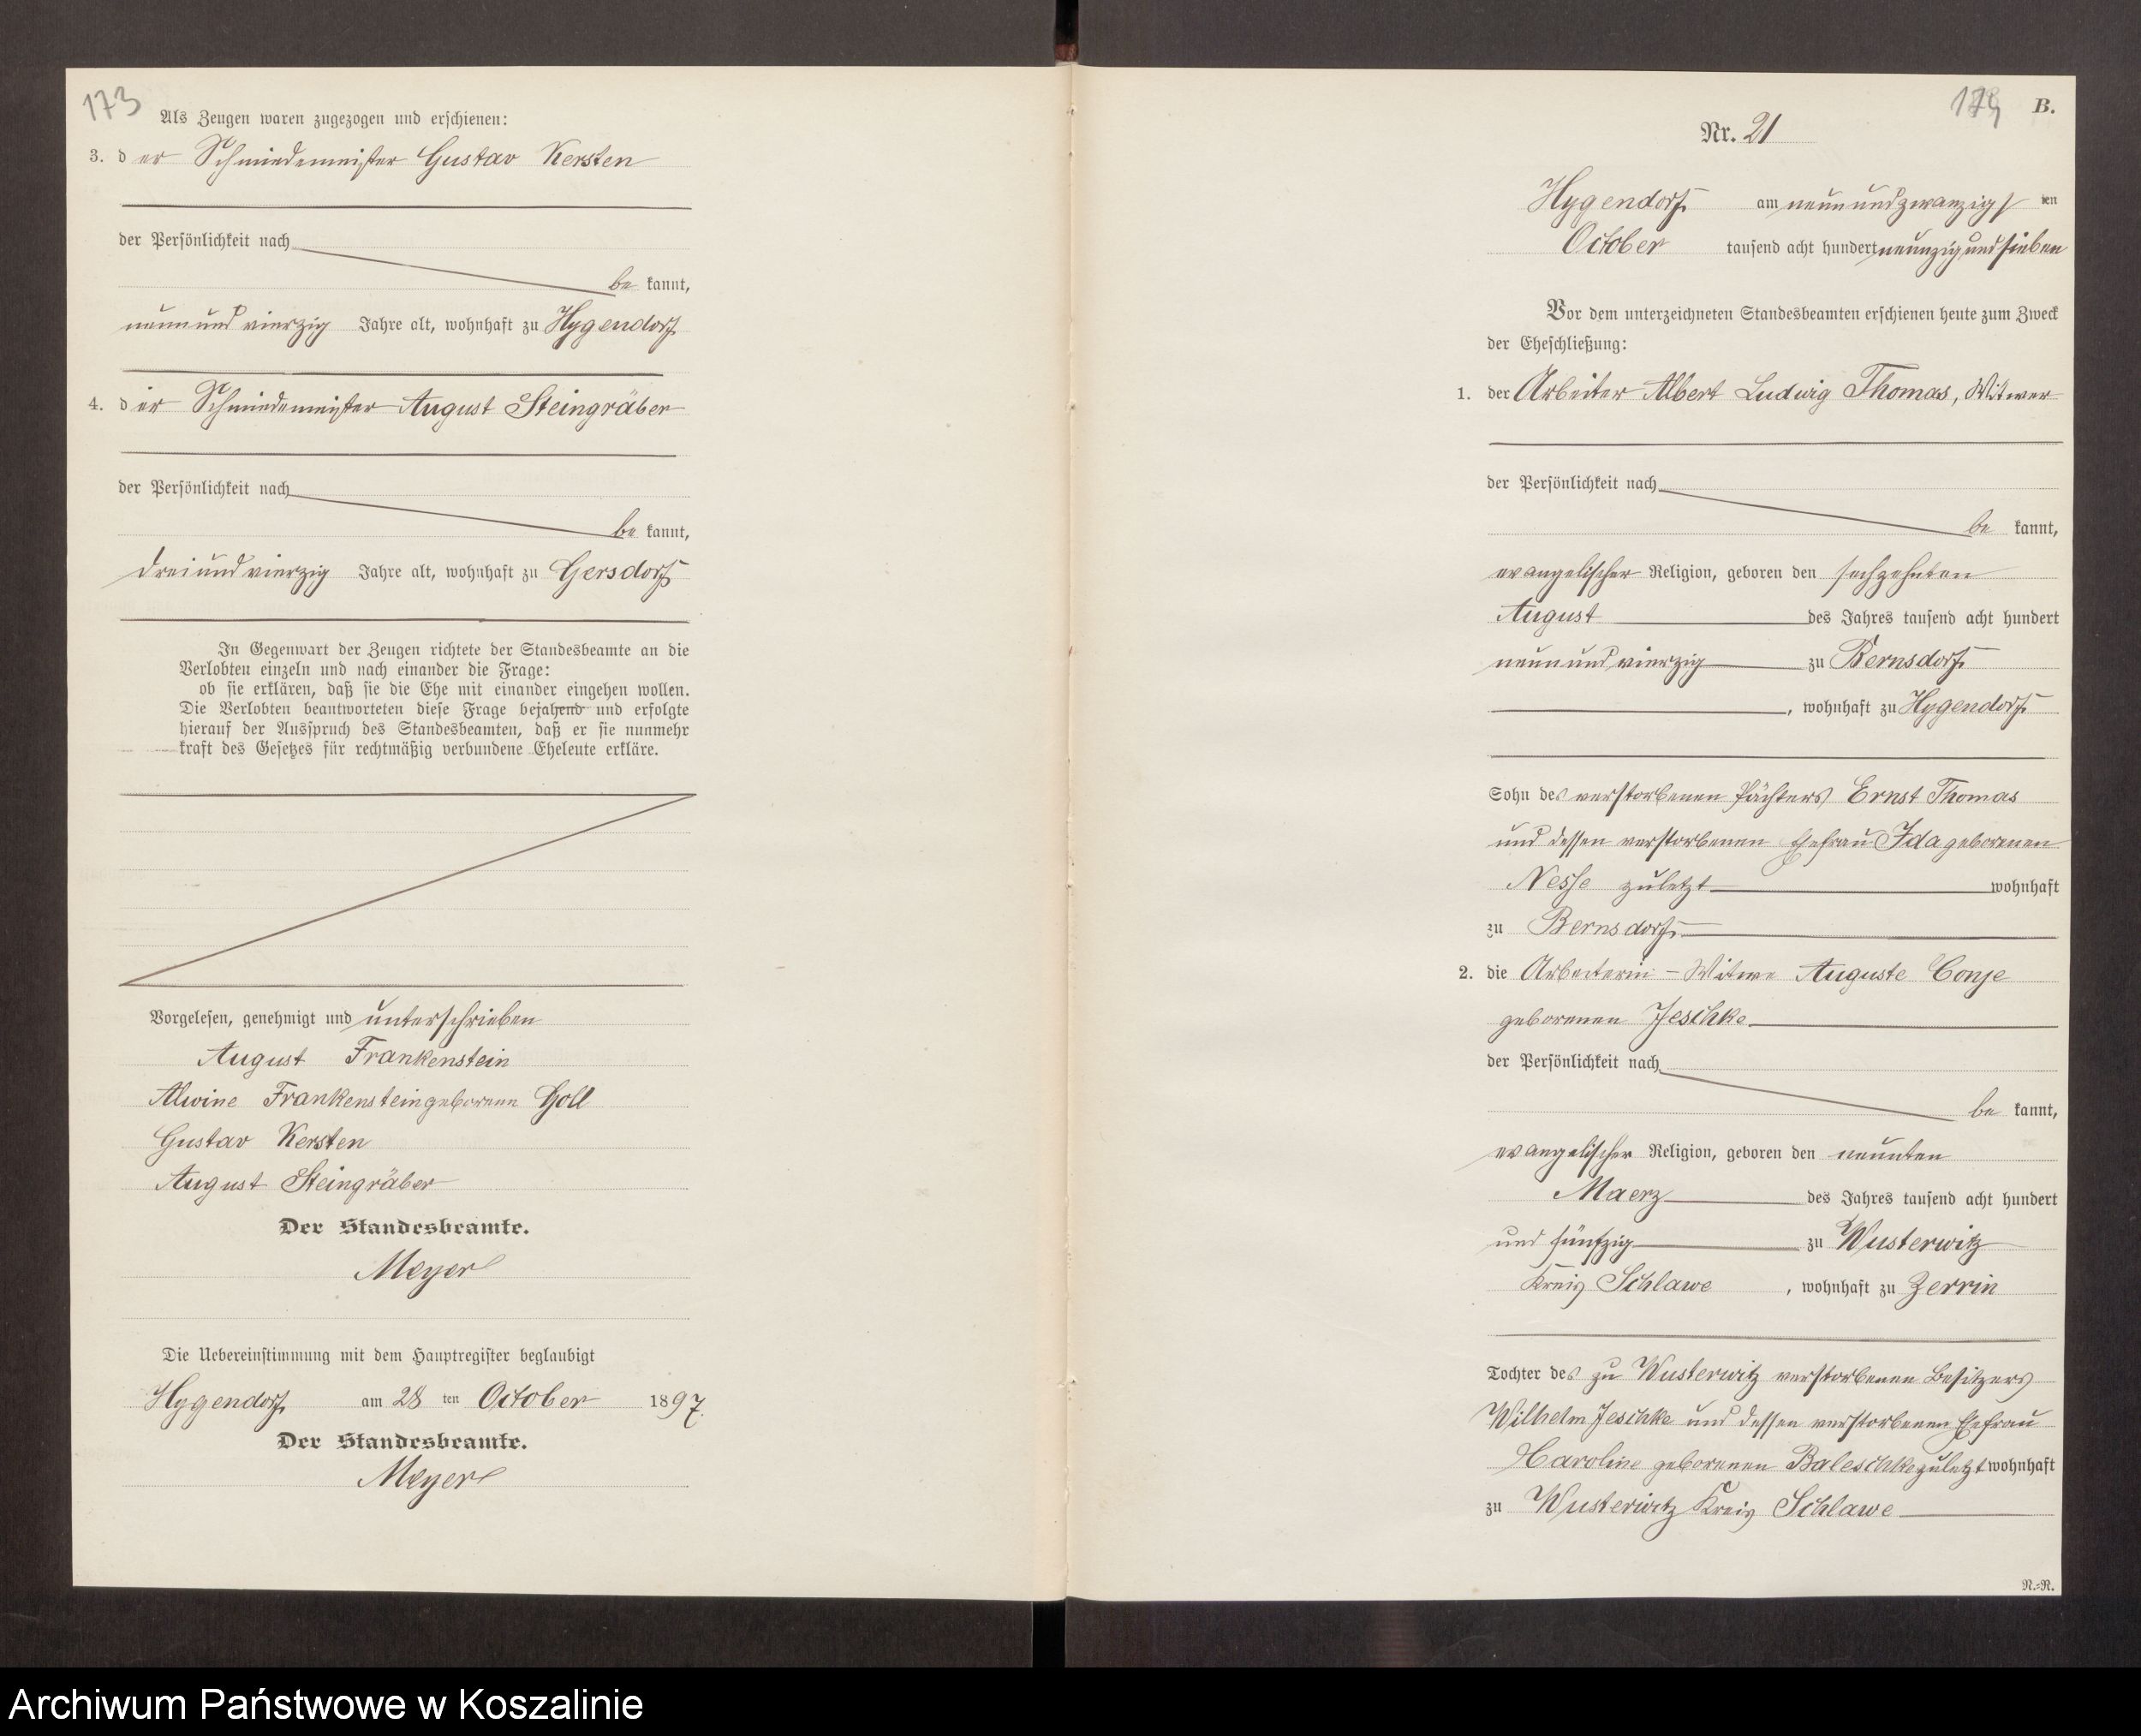 173
Als Zeugen waren zugezogen und erschienen:
3. der Schmiedemeister Gustav Kersten
der Persönlichkeit nach
be kannt,
neun und vierzig Jahre alt, wohnhaft zu Hygendorf
4. der Schmiedemeister August Steingräber
der Persönlichkeit nach
be kannt,
drei und vierzig Jahre alt, wohnhaft zu Gersdorf
In Gegenwart der Zeugen richtete der Standesbeamte an die
Verlobten einzeln und nach einander die Frage:
ob sie erklären, daß sie die Ehe mit einander eingehen wollen.
Die Verlobten beantworteten diese Frage bejahend und erfolgte
hierauf der Ausspruch des Standesbeamten, daß er sie nunmehr
kraft des Gesetzes für rechtmäßig verbundene Eheleute erkläre.
Vorgelesen, genehmigt und unterschrieben
August Frankenstein
Alwine Frankenstein geborene Goll
Gustav Kersten
August Steingräber
Der Standesbeamte.
Meyer
Die Uebereinstimmung mit dem Hauptregister beglaubigt
Hygendorf am 28 ten October 1897.
Der Standesbeamte.
Meyer
B.
Nr. 21
Hygendorf am neun und zwanzigsten
October tausend acht hundert neunzig und sieben
Vor dem unterzeichneten Standesbeamten erschienen heute zum Zweck
der Eheschließung:
1. der Arbeiter Albert Ludwig Thomas, Witwer
der Persönlichkeit nach
be kannt,
evangelischer Religion, geboren den sechzehnten
August des Jahres tausend acht hundert
neun und vierzig zu Bernsdorf
, wohnhaft zu Hygendorf
Sohn des verstorbenen Pächters Ernst Thomas
und dessen verstorbenen Ehefrau Ida geborenen
Nesse zuletzt wohnhaft
zu Bernsdorf
2. die Arbeiterin-Witwe Auguste Conje
geborenen Jeschke
der Persönlichkeit nach
be kannt,
evangelischer Religion, geboren den neunten
Maerz des Jahres tausend acht hundert
und fünfzig zu Wusterwitz
Kreis Schlawe, wohnhaft zu Zerrin
Tochter des zu Wusterwitz verstorbenen Besitzers
Wilhelm Jeschke und dessen verstorbenen Ehefrau
Caroline geborenen Baleschke zuletzt wohnhaft
zu Wusterwitz Kreis Schlawe
N.-R.
Archiwum Państwowe w Koszalinie